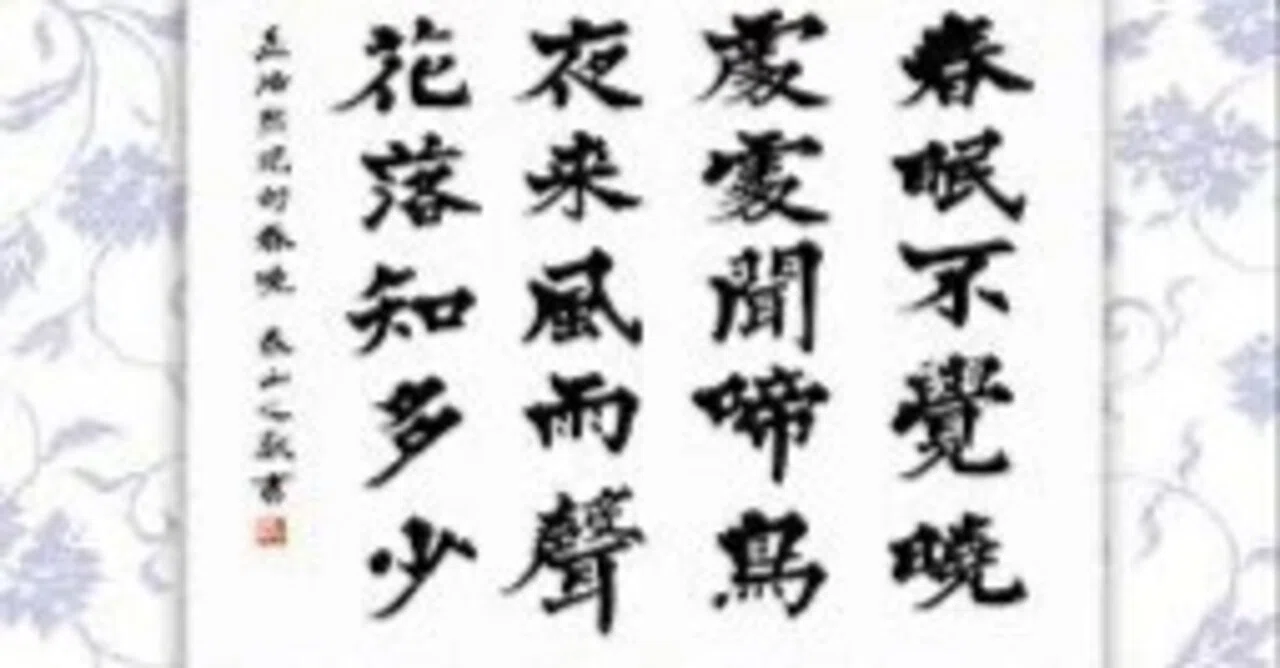 春眠不覺曉
處處聞啼鳥
夜来風雨聲
花落知多少
孟浩然 的春曉 春山 書